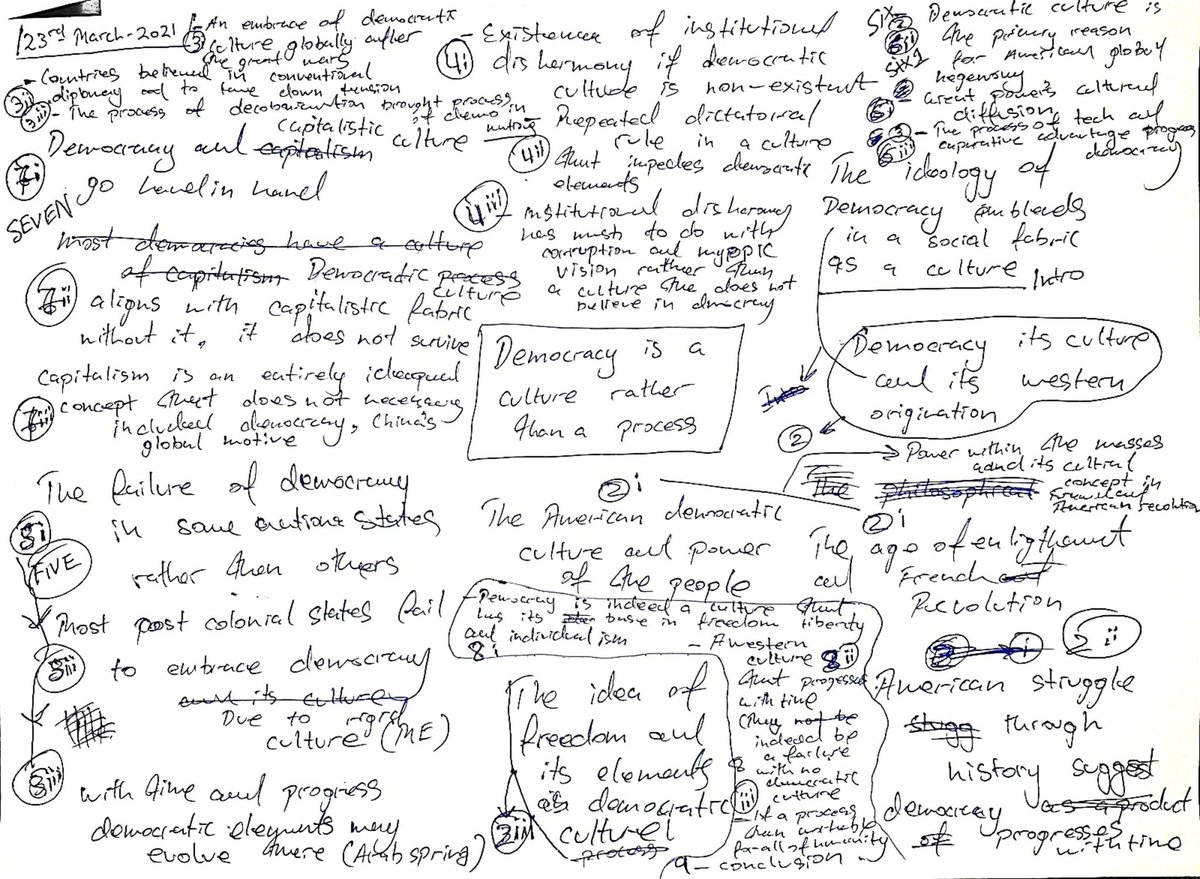 23rd March - 2021
③ i - An embrace of democratic
culture globally after
the great wars
③ii - Countries believed in conventional
diplomacy and to tone down tension
③iii - The process of decolonization brought process
of democratic
capitalistic culture
Democracy and capitalism
⑦i go hand in hand
SEVEN
most democracies have a culture
of capitalism Democratic process
culture
⑦ii aligns with capitalistic fabric
without it, it does not survive
capitalism is an entirely
⑦iii concept that does not necessary
included democracy, China's
global motive
The failure of democracy
⑧i in some nations states
FIVE
rather than others
Most post colonial states fail
⑧ii to embrace democracy
and its culture
Due to rigid
culture (ME)
⑧iii with time and progress
democratic elements may
evolve there (Arab spring)
④i - Existence of institutional
disharmony if democratic
culture is non-existent
④ii - Repeated dictatorial
rule in a culture
that impedes democratic
elements
④iii - institutional disharmony
has much to do with
corruption and myopic
vision rather than
a culture that does not
believe in dmocracy
Democracy is a
culture rather
than a process
②i
The American democratic
culture and power
of the people
- Democracy is indeed a culture that
has its base in freedom liberty
and individualism
8i
- A western
culture 8ii
that progresses
with time
they not be
indeed be
a failure
with no
democratic
culture
iii
- If a process
than unsuitable
for all of humanity
9 - conclusion
The idea of
freedom and
its elements
as democratic
②iii culture
process
SIX - Democratic culture is
⑥i the primary reason
for American global
hegemony
SIX 2
Great powers cultural
diffusion
⑥iii - The process of tech and
advantage progress
democracy
The ideology of
Democracy emblends
in a social fabric
as a culture
Intro
Democracy its culture
and its western
origination
Intro
②
→ Power within the masses
and its cultral
concept in
French and
American revolution
The philosophical
②i
The age of enligthemnt
and French
Revolution
2ii
American struggle
through
history suggest
democracy as a product
of progresses
with time